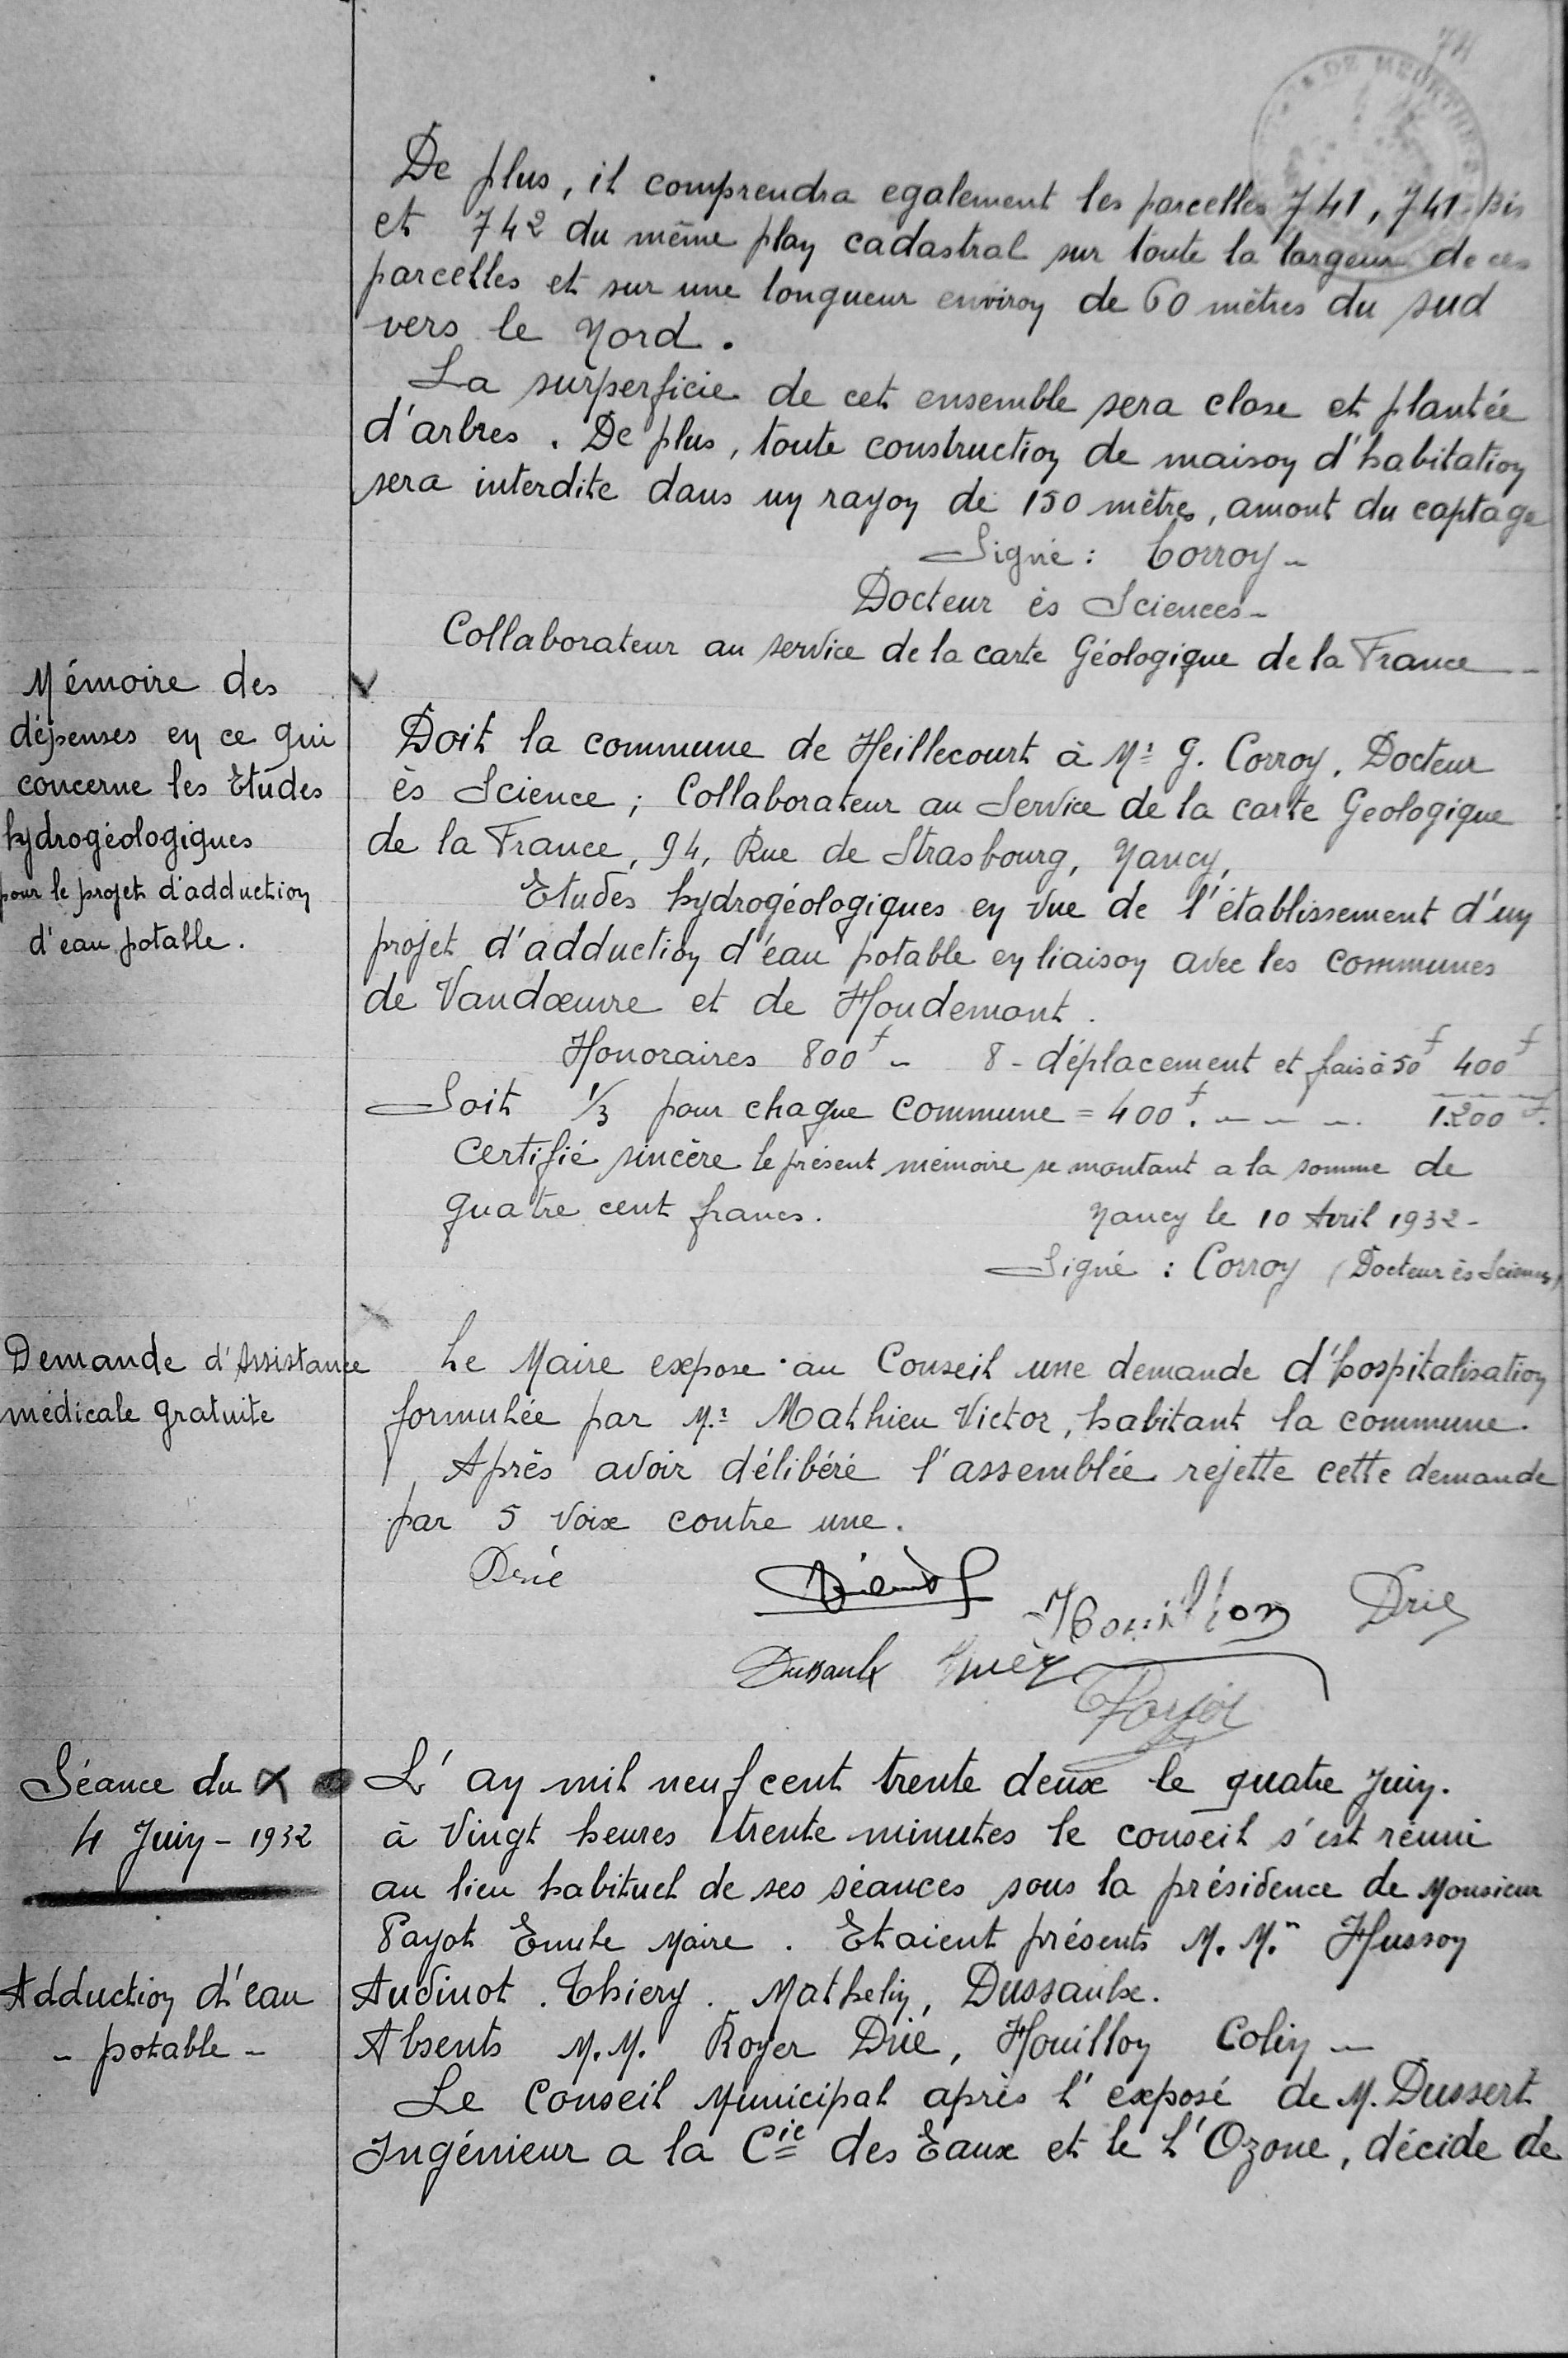 74
DE MEURTHE
De plus, il comprendra egalement les parcelles 741, 741 bis
et 742 du même plan cadastral sur toute la largeur de ces
parcelles et sur une longueur environ de 60 mètres du sud
vers le Nord.
La surperficie de cet ensemble sera close et plantée
d'arbres. De plus, toute construction de maison d'habitation
sera interdite dans un rayon de 150 mètres, amont du captage
Signé : Corroy -
Docteur ès Sciences -
Collaborateur au service de la carte Géologique de la France -
Mémoire des
dépenses en ce qui
concerne les Etudes
hydrogéologiques
pour le projet d'adduction
d'eau potable.
Doit la commune de Heillecourt à Mr G. Corroy, Docteur
ès Science ; Collaborateur au Service de la carte Géologique
de la France, 94, Rue de Strasbourg, Nancy,
Etudes hydrogéologiques en vue de l'établissement d'un
projet d'adduction d'eau potable en liaison avec les communes
de Vandœuvre et de Houdemont.
Honoraires 800f - 8 - déplacement et frais à 50f 400f
Soit 1/3 pour chaque commune = 400f. - - - . 1.200f.
Certifié sincère le présent mémoire se montant a la somme de
quatre cent francs.
Nancy le 10 Avril 1932 -
Signé : Corroy (Docteur ès Sciences)
Demande d'Assistance
médicale gratuite
Le Maire expose au Conseil une demande d'hospitalisation
formulée par Mr Mathieu Victor, habitant la commune.
Après avoir délibéré l'assemblée rejette cette demande
par 5 voix contre une.
Drié
Houillon Drié
Dussaulx
Payot
Séance du
4 Juin - 1932
L'an mil neuf cent trente deux le quatre Juin.
à Vingt heures trente minutes le conseil s'est réuni
au lieu habituel de ses séances sous la présidence de Monsieur
Payot Emile Maire. Etaient présents M. M. Husson
Audinot. Thiery. Mathelin, Dussaulx.
Adduction d'eau
- potable -
Absents M. M. Royer Drié, Houillon Colin -
Le Conseil Municipal après l'exposé de M. Dussert
Ingénieur a la Cie des Eaux et le l'Ozone, décide de